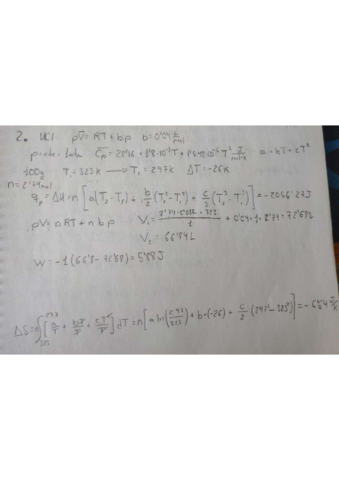 2. HCl pV̄ = RT + bp b = 0'04 L/mol
p = cte = 1 atm C̄p = 28'16 + 1'8·10⁻³T + T² J/mol·K = a + bT + cT²
100g T₁ = 323K → T₂ = 297K ΔT = -26K
n = 2'74 mol
qp = ΔH = n [a(T₂ - T₁) + b/2 (T₂² - T₁²) + c/3 (T₂³ - T₁³)] = -2066'27J
pV = nRT + nbp V₁ = 2'74·0'082·323/1 + 0'04·1·2'74 = 72'68L
V₂ = 66'84L
W = -1(66'8 - 72'68) = 5'88J
ΔS = n∫ [a/T + bT/T + cT²/T] dT = n[a ln( /323) + b·(-26) + c/2 (297² - 323²)] = -6'64 J/K